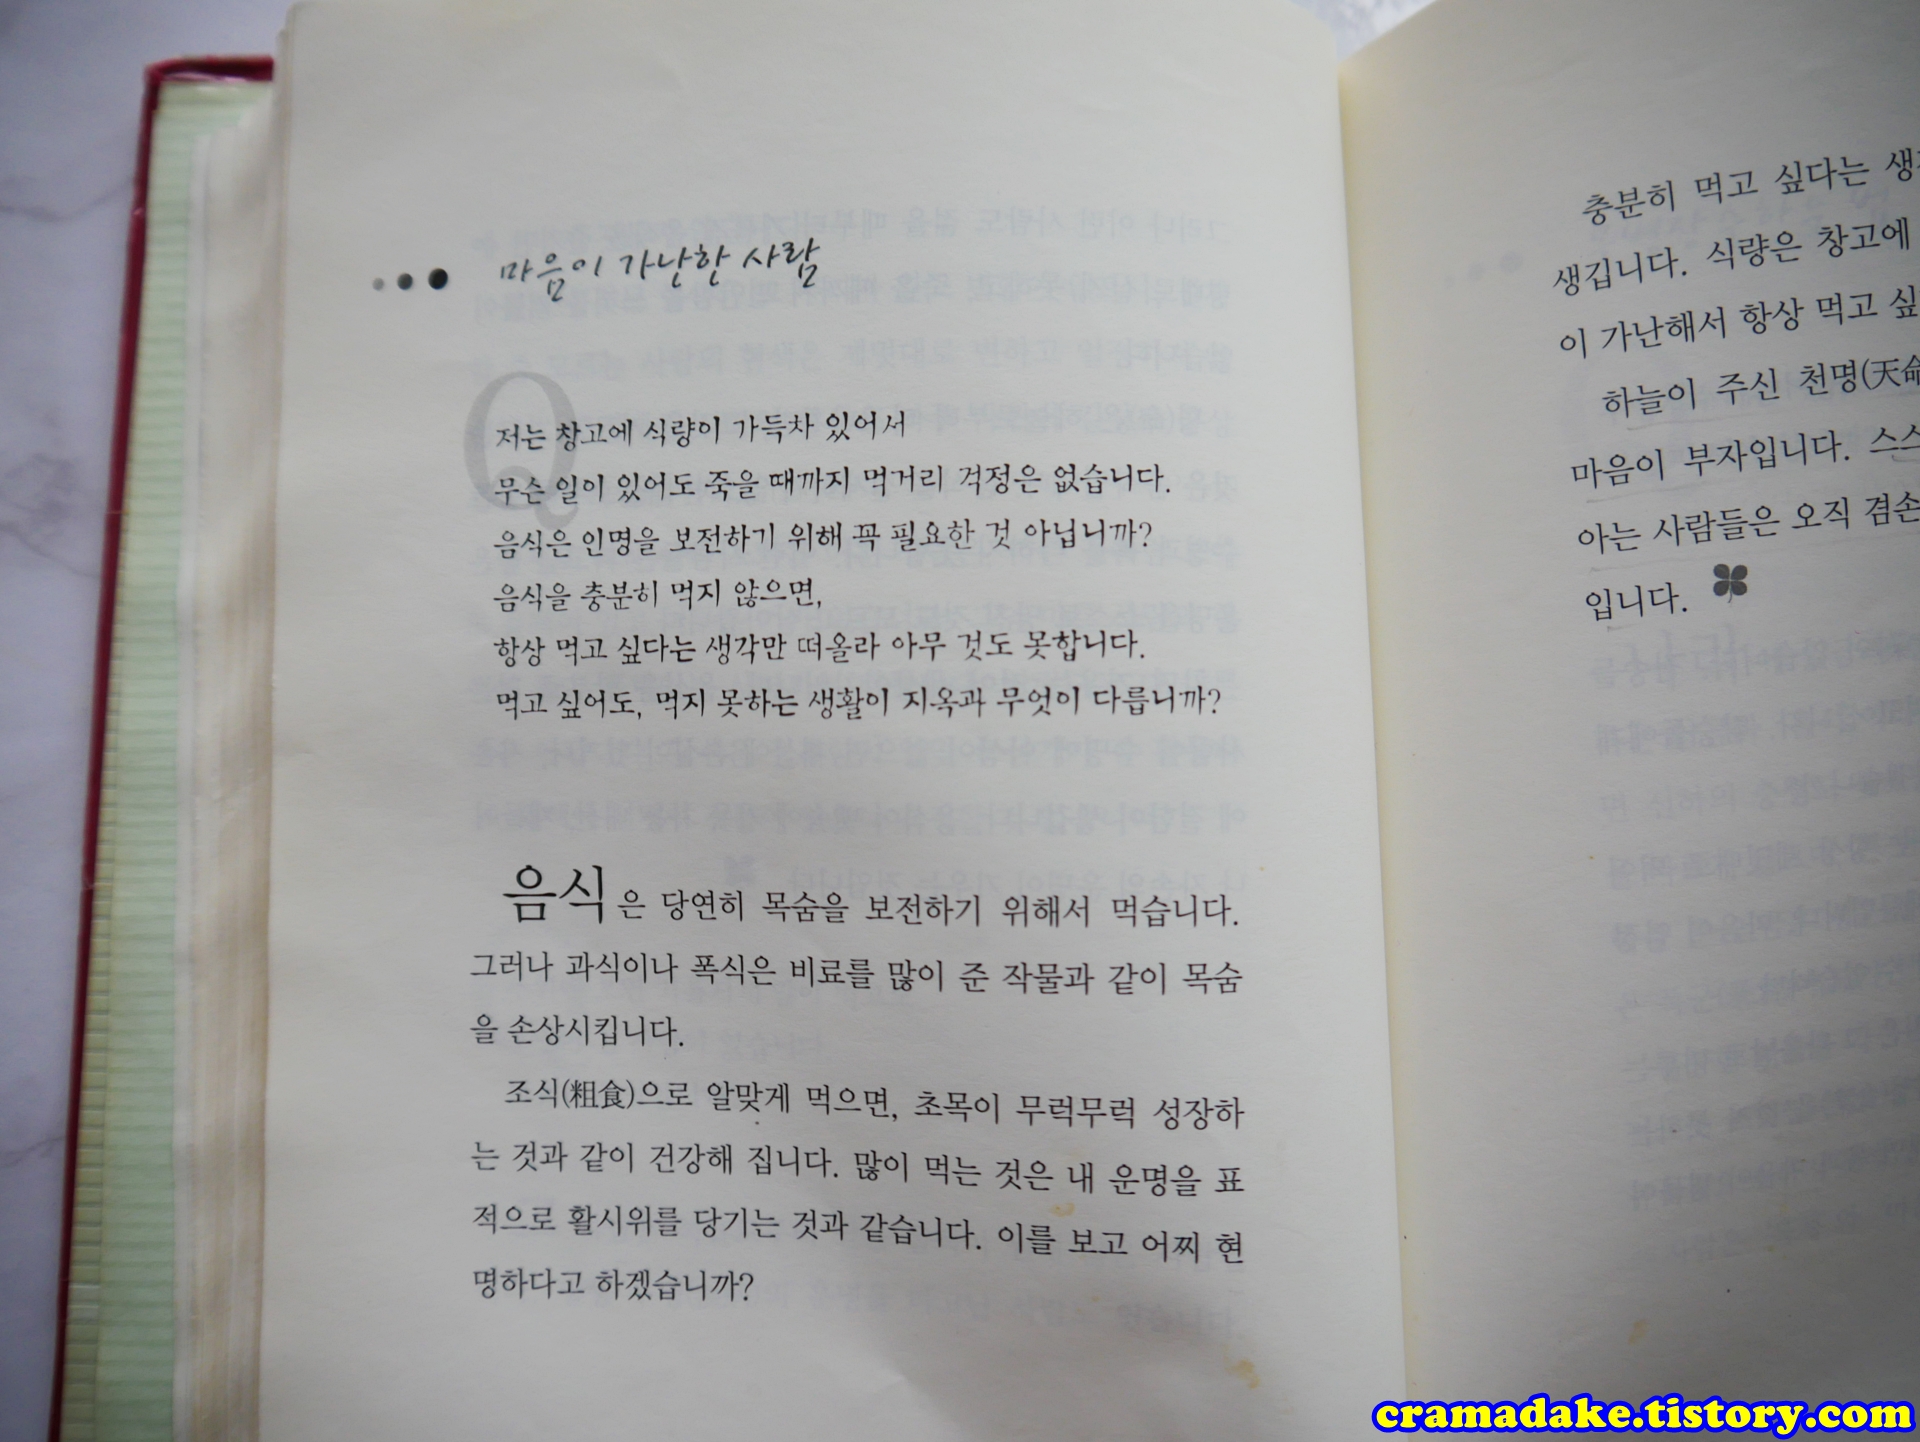 마음이 가난한 사람
Q
저는 창고에 식량이 가득차 있어서
무슨 일이 있어도 죽을 때까지 먹거리 걱정은 없습니다.
음식은 인명을 보전하기 위해 꼭 필요한 것 아닙니까?
음식을 충분히 먹지 않으면,
항상 먹고 싶다는 생각만 떠올라 아무 것도 못합니다.
먹고 싶어도, 먹지 못하는 생활이 지옥과 무엇이 다릅니까?
음식은 당연히 목숨을 보전하기 위해서 먹습니다.
그러나 과식이나 폭식은 비료를 많이 준 작물과 같이 목숨
을 손상시킵니다.
조식(粗食)으로 알맞게 먹으면, 초목이 무럭무럭 성장하
는 것과 같이 건강해 집니다. 많이 먹는 것은 내 운명을 표
적으로 활시위를 당기는 것과 같습니다. 이를 보고 어찌 현
명하다고 하겠습니까?
충분히 먹고 싶다는
생깁니다. 식량은 창고에
이 가난해서 항상 먹고
하늘이 주신 천명(天命
마음이 부자입니다.
아는 사람들은 오직 겸손
입니다.
cramadake.tistory.com